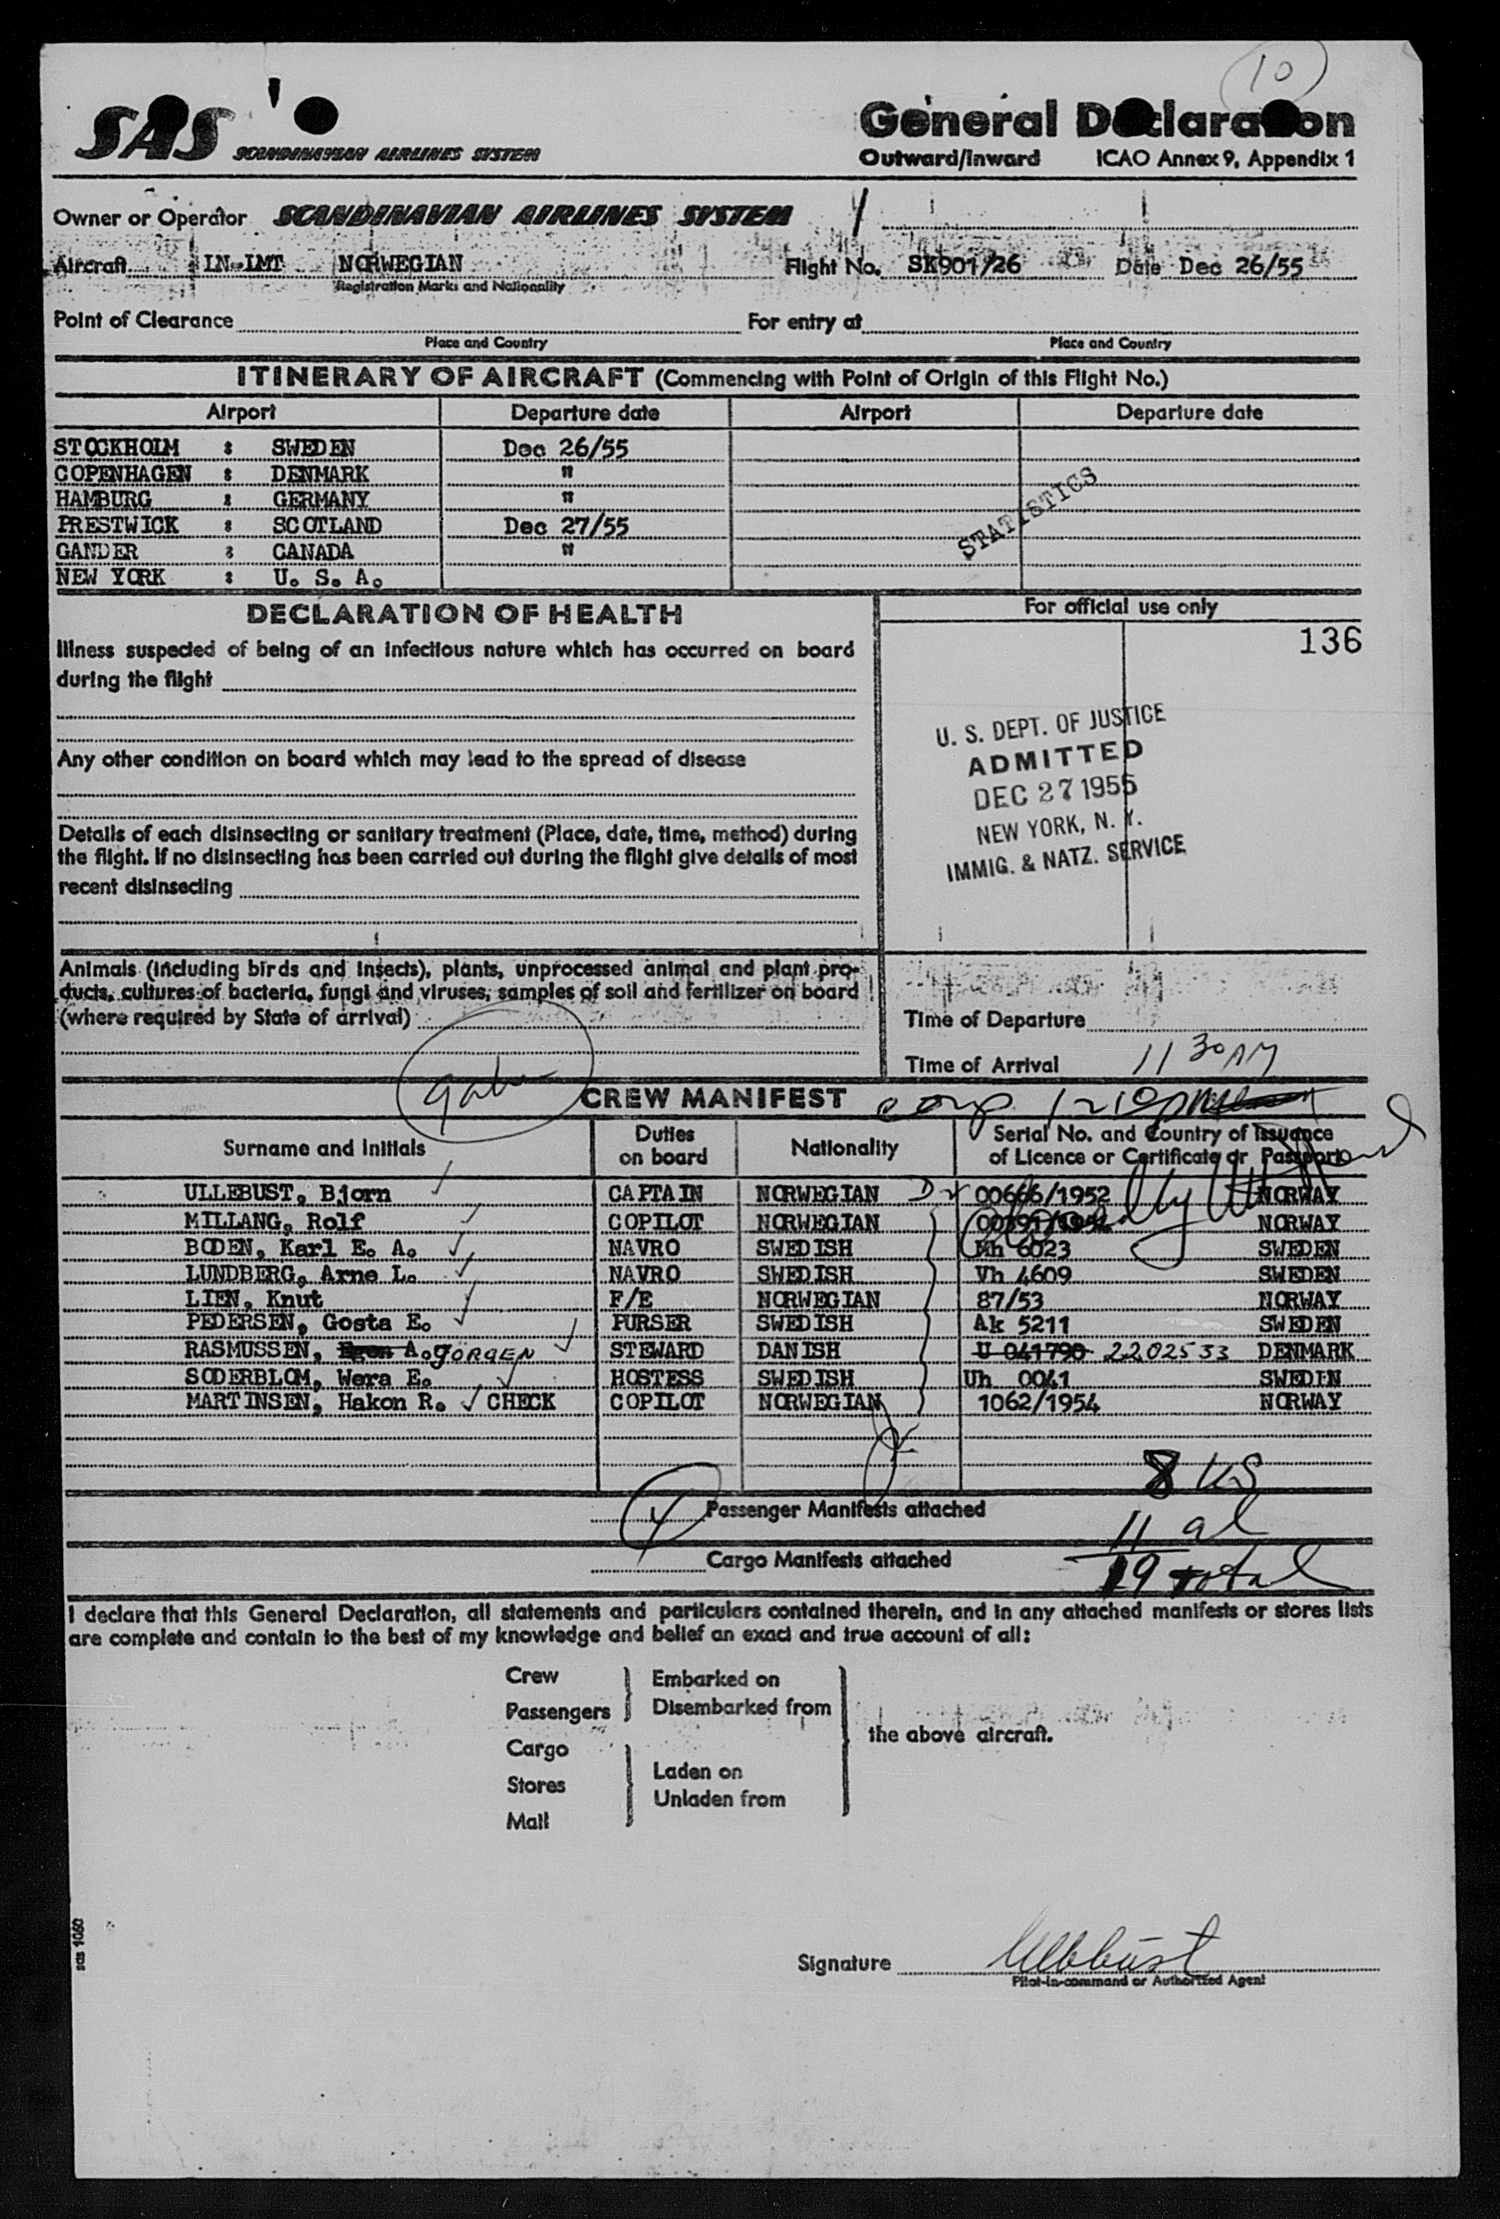 10
SAS SCANDINAVIAN AIRLINES SYSTEM
General Declaration
Outward/Inward ICAO Annex 9, Appendix 1
Owner or Operator SCANDINAVIAN AIRLINES SYSTEM
Aircraft LN-LMT NORWEGIAN Flight No. SK901/26 Date Dec 26/55
Registration Marks and Nationality
Point of Clearance For entry at
Place and Country Place and Country
ITINERARY OF AIRCRAFT (Commencing with Point of Origin of this Flight No.)
Airport Departure date Airport Departure date
STOCKHOLM : SWEDEN Dec 26/55
COPENHAGEN : DENMARK "
HAMBURG : GERMANY "
PRESTWICK : SCOTLAND Dec 27/55
GANDER : CANADA "
NEW YORK : U. S. A.
STATISTICS
DECLARATION OF HEALTH
Illness suspected of being of an infectious nature which has occurred on board
during the flight
Any other condition on board which may lead to the spread of disease
Details of each disinsecting or sanitary treatment (Place, date, time, method) during
the flight. If no disinsecting has been carried out during the flight give details of most
recent disinsecting
For official use only
136
U. S. DEPT. OF JUSTICE
ADMITTED
DEC 27 1955
NEW YORK, N. Y.
IMMIG. & NATZ. SERVICE
Animals (including birds and insects), plants, unprocessed animal and plant pro-
ducts, cultures of bacteria, fungi and viruses, samples of soil and fertilizer on board
(where required by State of arrival)
Time of Departure
Time of Arrival 11 30 AM
CREW MANIFEST
Surname and Initials Duties on board Nationality Serial No. and Country of Issuance of Licence or Certificate or Passport
ULLEBUST, Bjorn CAPTAIN NORWEGIAN 00666/1952 NORWAY
MILLANG, Rolf COPILOT NORWEGIAN NORWAY
BODEN, Karl E. A. NAVRO SWEDISH 6023 SWEDEN
LUNDBERG, Arne L. NAVRO SWEDISH Vh 4609 SWEDEN
LIEN, Knut F/E NORWEGIAN 87/53 NORWAY
PEDERSEN, Gosta E. PURSER SWEDISH Ak 5211 SWEDEN
RASMUSSEN, Egon A. JÖRGEN STEWARD DANISH U 041790 2202533 DENMARK
SODERBLOM, Wera E. HOSTESS SWEDISH Uh 0041 SWEDIN
MARTINSEN, Hakon R. CHECK COPILOT NORWEGIAN 1062/1954 NORWAY
8 US
Passenger Manifests attached
11 al
Cargo Manifests attached
19 total
I declare that this General Declaration, all statements and particulars contained therein, and in any attached manifests or stores lists
are complete and contain to the best of my knowledge and belief an exact and true account of all:
Crew Embarked on
Passengers Disembarked from
the above aircraft.
Cargo
Stores Laden on
Unladen from
Mail
sas 1060
Signature Ullebust
Pilot-in-command or Authorized Agent